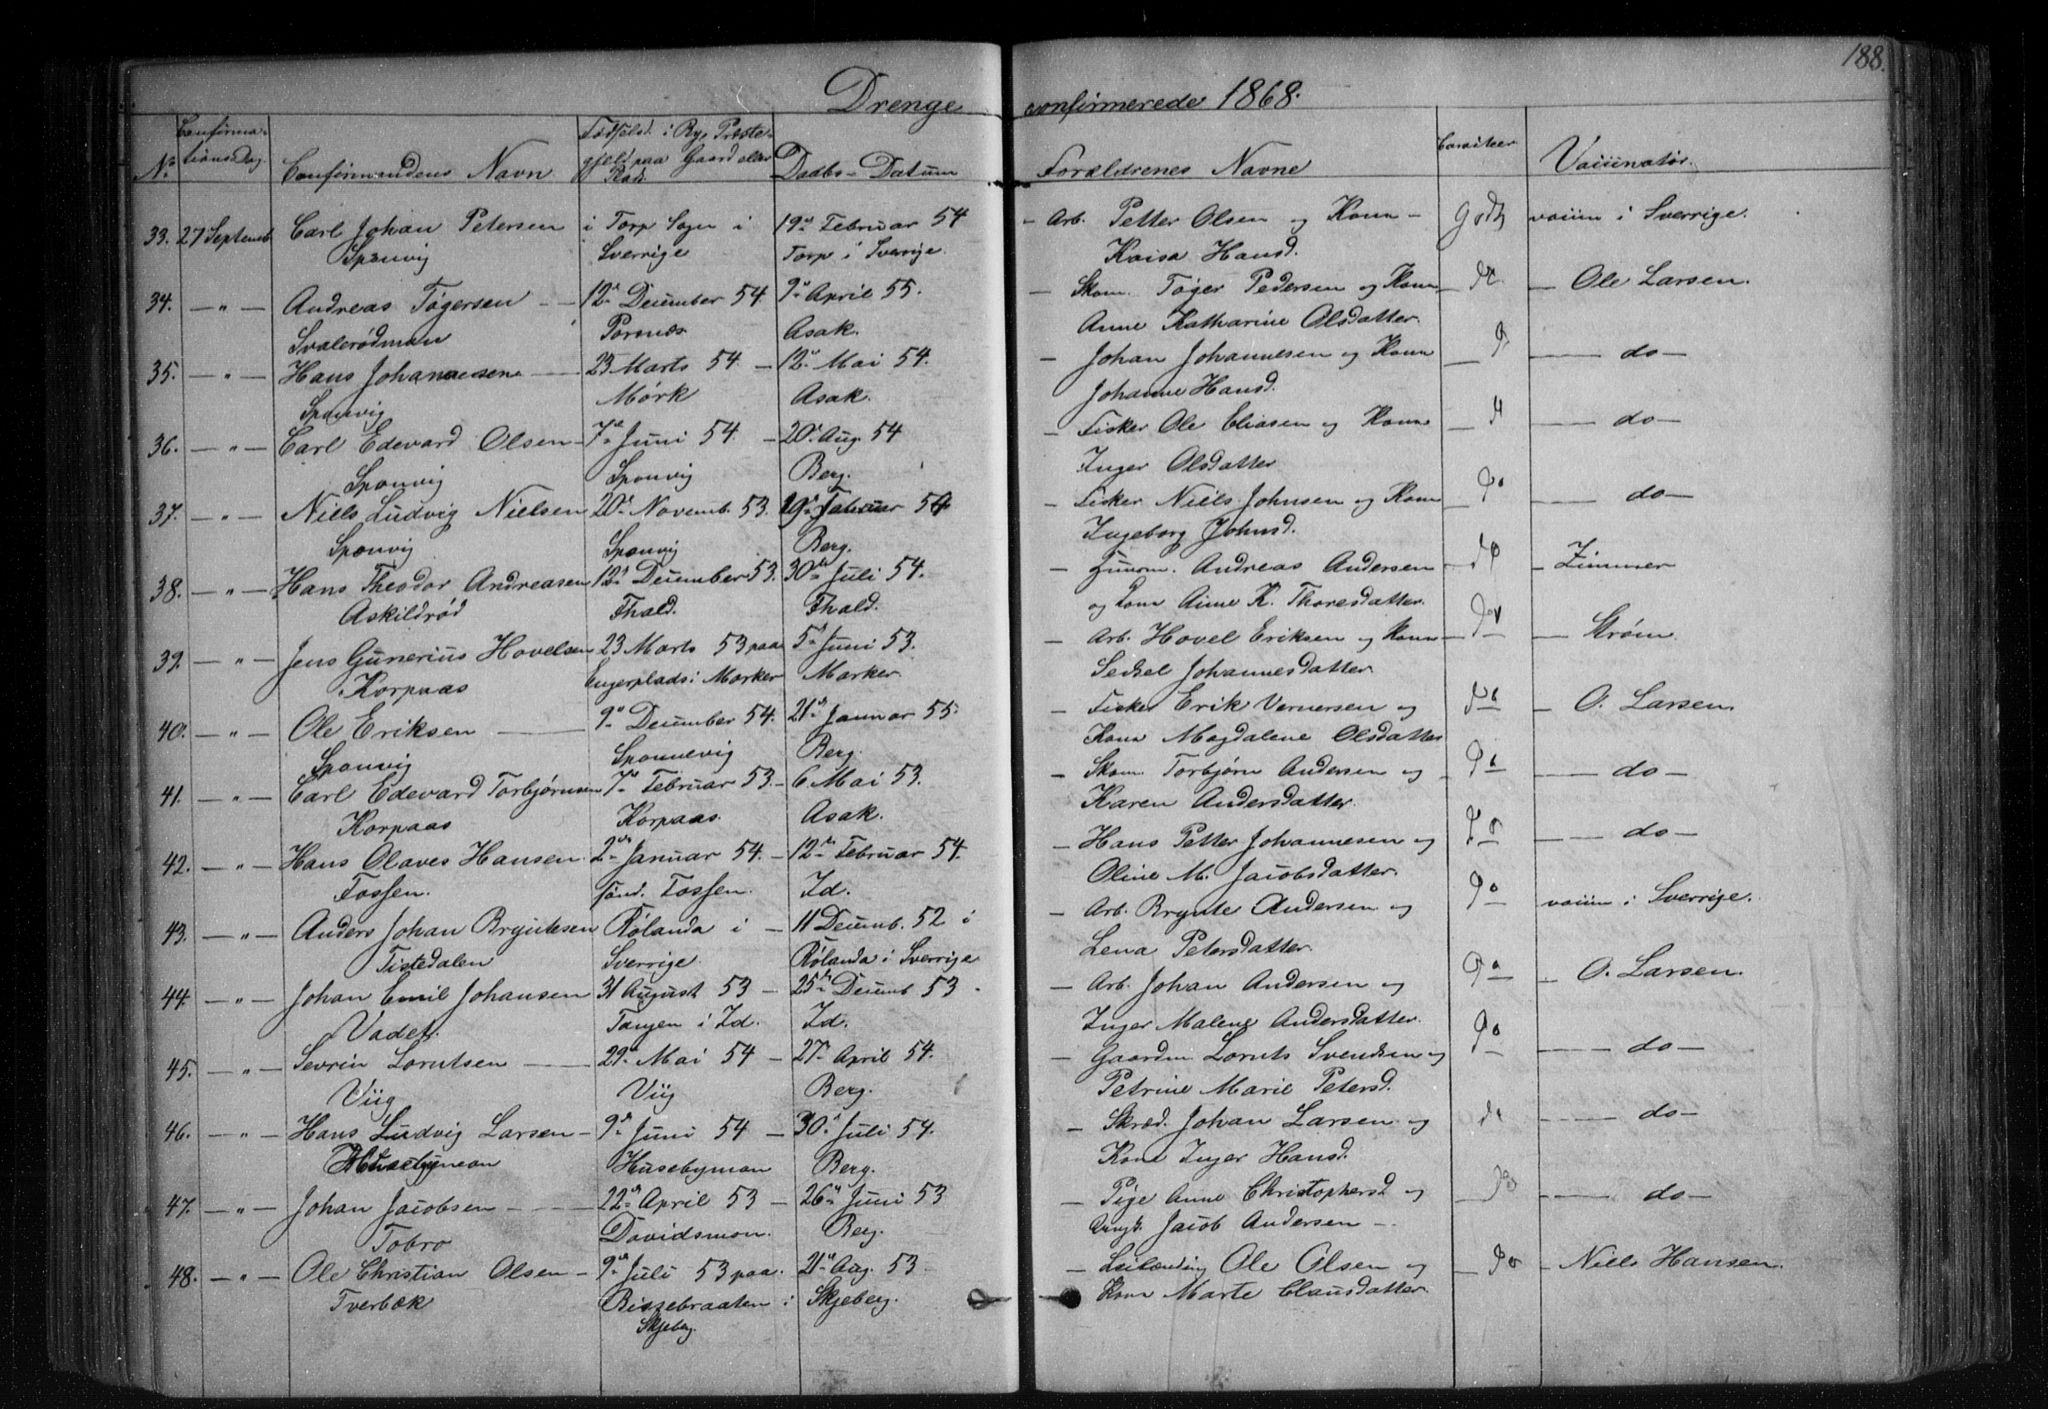 188.
Drenge confirmerede 1868.
No Confirmationsdag. Confirmandens Navn Fødselsd. i By, Præstegjeld paa Gaard eller Plads Daabs-Datum Forældrenes Navne Caracteer Vaccinatør.
33. 27 Septemb. Carl Johan Petersen i Torp Sogn i 19de Februar 54 - Arb. Petter Olsen og Kone - Godt vaccin i Sverrige.
Sponvig Sverrige Torp i Sverrige. Kaisa Hansd.
34. — " — Andreas Tøgersen — 12te December 54. 9de April 55. — Skom. Tøger Pedersen og Kone — do — Ole Larsen.
Svalerødmon Pornæs Asak. Anne Katharine Olsdatter.
35. — " — Hans Johannesen — 23 Marts 54 — 12te Mai 54. — Johan Johannesen og Kone — do — do —
Sponvig Mørk Asak. Johanne Hansd.
36. — " — Carl Edevard Olsen — 7de Juni 54. — 20de Aug. 54 — Fisker Ole Eliasen og Kone — do — do —
Sponvig Sponvig Berg. Inger Olsdatter
37. — " — Niels Ludvig Nielsen 20de Novemb. 53. 19de Februar 54 — Fisker Niels Johnsen og Kone do — do —
Sponvig Sponvig Berg. Ingeborg Johnsd.
38. — " — Hans Theodor Andreasen 12te December 53. 30te Juli 54. — Andreas Andersen — do — Zimmer
Askildrød Fhald. Fhald. og Kone Anne K. Thoresdatter.
39. — " — Jens Gunerius Hovelsen 23 Marts 53 paa 5te Juni 53. — Arb. Hovel Eriksen og Kone — do — Strøm.
Korpaas Engerplads i Marker Marker Sedsel Johannesdatter
40. — " — Ole Eriksen — 9de December 54. 21de Januar 55. — Fisker Erik Vernersen og do — O. Larsen.
Sponvig Sponnevig Berg. Kone Magdalene Olsdatter
41. — " — Carl Edevard Torbjørnsen 7de Februar 53. — 6 Mai 53. — Skom. Torbjørn Andersen og — do — do —
Korpaas Korpaas. Asak. Karen Andersdatter.
42. — " — Hans Olaves Hansen. 2den Januar 54. — 12te Februar 54. — Hans Petter Johannesen og do — do —
Fossen. sønd. Fossen. Id. Oline M. Jacobsdatter.
43. — " — Anders Johan Bryntesen Rølanda i — 11 Decemb. 52 i — Arb. Brynte Andersen og do vaccin i Sverrige.
Tistedalen Sverrige. Rølanda i Sverrige Lena Petersdatter.
44. — " — Johan Emil Johansen 31 August 53 — 25te Decemb 53 — Arb. Johan Andersen og do — O. Larsen.
Vadet. Tangen i Id. Id. Inger Malene Andersdatter.
45. — " — Sevrin Lorntsen — 29de Mai 54 — 27de April 54. — Gaardm. Lornts Svendsen og do — do —
Viig Viig Berg. Petrine Marie Petersd.
46. — " — Hans Ludvig Larsen — 9de Juni 54 — 30te Juli 54. — Skræd. Johan Larsen og do — do —
Husebymon Husebymon Berg. Kone Inger Hansd.
47. — " — Johan Jacobsen — 22de April 53 — 26de Juni 53 — Pige Anne Christophersd. og — do — do —
Tobro Davidsmon. Berg. Jacob Andersen —
48. — " — Ole Christian Olsen — 9de Juli 53 paa. 21de Aug. 53. — Leilænding Ole Olsen og — do — Niels Hansen.
Tverbæk Bissebraaten i Skjeberg. Kone Marte Clausdatter.
Skjeberg.